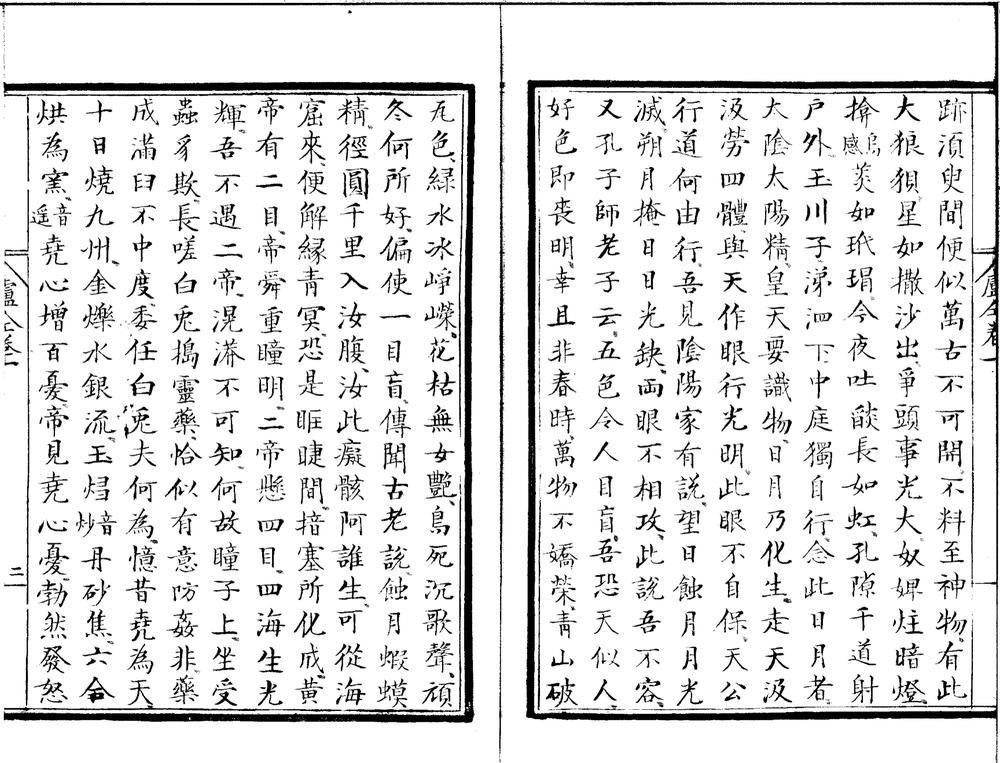 跡須臾間便似萬古不可開不料至神物有此
大狼狽星如撒沙出爭頭事光大奴婢炷暗燈
揜烏感菼如玳瑁今夜吐燄長如虹孔隙千道射
戶外玉川子涕泗下中庭獨自行念此日月者
太陰太陽精皇天要識物日月乃化生走天汲
汲勞四體與天作眼行光明此眼不自保天公
行道何由行吾見陰陽家有說望日蝕月月光
滅朔月掩日日光缺兩眼不相攻此說吾不容
又孔子師老子云五色令人目盲吾恐天似人
好色即喪明幸且非春時萬物不嬌榮青山破
盧仝卷一
瓦色綠水冰崢嶸花枯無女艷鳥死沉歌聲頑
冬何所好偏使一目盲傳聞古老說蝕月蝦蟆
精徑圓千里入汝腹汝此癡骸阿誰生可從海
窟來便解緣青冥恐是眶睫間揞塞所化成黃
帝有二目帝舜重瞳明二帝懸四目四海生光
輝吾不遇二帝滉漭不可知何故瞳子上坐受
蟲豸欺長嗟白兎搗靈藥恰似有意防姦非藥
成滿臼不中度委任白兎夫何為憶昔堯為天
十日燒九州金爍水銀流玉熖音炒丹砂焦六合
烘為窯音遥堯心增百憂帝見堯心憂勃然發怒
盧仝卷一
三